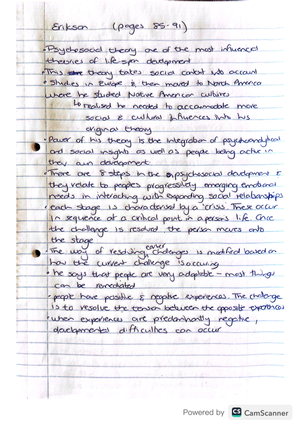 Erikson (pages 85-91)
• Psychosocial theory one of the most influenced
theories of life-span development
• This theory takes social context into account
• Studies in Europe & then moved to North America
where he studied Native American cultures
↳ realised he needed to accommodate more
social & cultural influences into his
original theory
• Power of his theory is the integration of psychoanalytical
and social insights as well as people being active in
their own development
• There are 8 steps in the psychosocial development &
they relate to people's progressively emerging emotional
needs in interacting with expanding social relationships
• each stage is characterised by a 'crisis'. These occur
in sequence at a critical point in a persons life. Once
the challenge is resolved the person moves onto
the stage
• The way of resolving earlier challenges is modified based on
how the current challenge is occuring
• he says that people are very adaptable - most things
can be remediated
• people have positive & negative experiences. The challenge
is to resolve the tension between the opposite experiences
• when experiences are predominantly negative,
developmental difficulties can occur
Powered by CS CamScanner